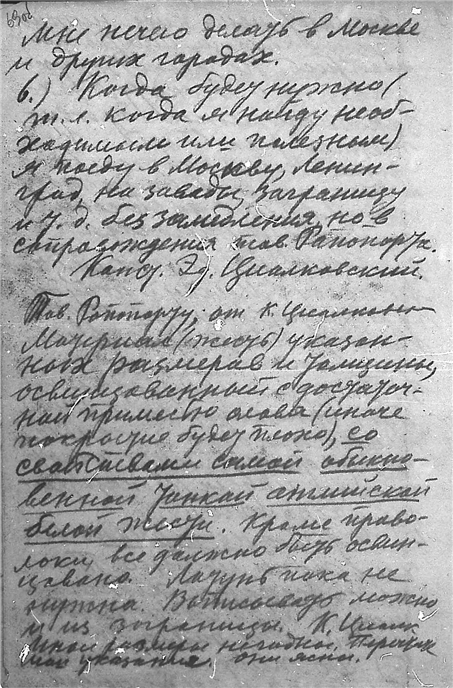 63об
Мне нечего делать в Москве
и других городах.
6.) Когда будет нужно (
т.е. когда я найду необ-
ходимым или полезным)
я поеду в Москву, Ленин-
град, на заводы, заграницу
и т.д. без замедления, но в
сопровождении тов. Рапопорта.
Конст. Эд. Циалковский.
Тов. Рапопорту, от К. Циалковск
Материал (жесть) указан-
ных размеров и толщины,
освинцованный с достаточ-
ной примесью олова (иначе
покрытие будет плохо), со
свойствами самой обыкно-
венной тонкой английской
белой жести. Кроме прово-
локи все должно быть освин-
цовано. Латунь пока не
нужна. Выписывать можно
и из заграницы. К. Циалк
Иные размеры негодны.
мои указания, они ясны.